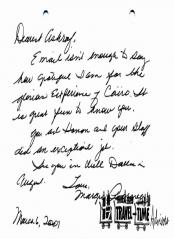 Dearest Ashraf,
Email isn't enough to say
how grateful I am for the
glorious Experience of Cairo. It
is great fun to know you.
You set Honor and your Staff
did an exceptional job.
See you in
August.
Love,
March 6, 2001
TRAVEL-TIME